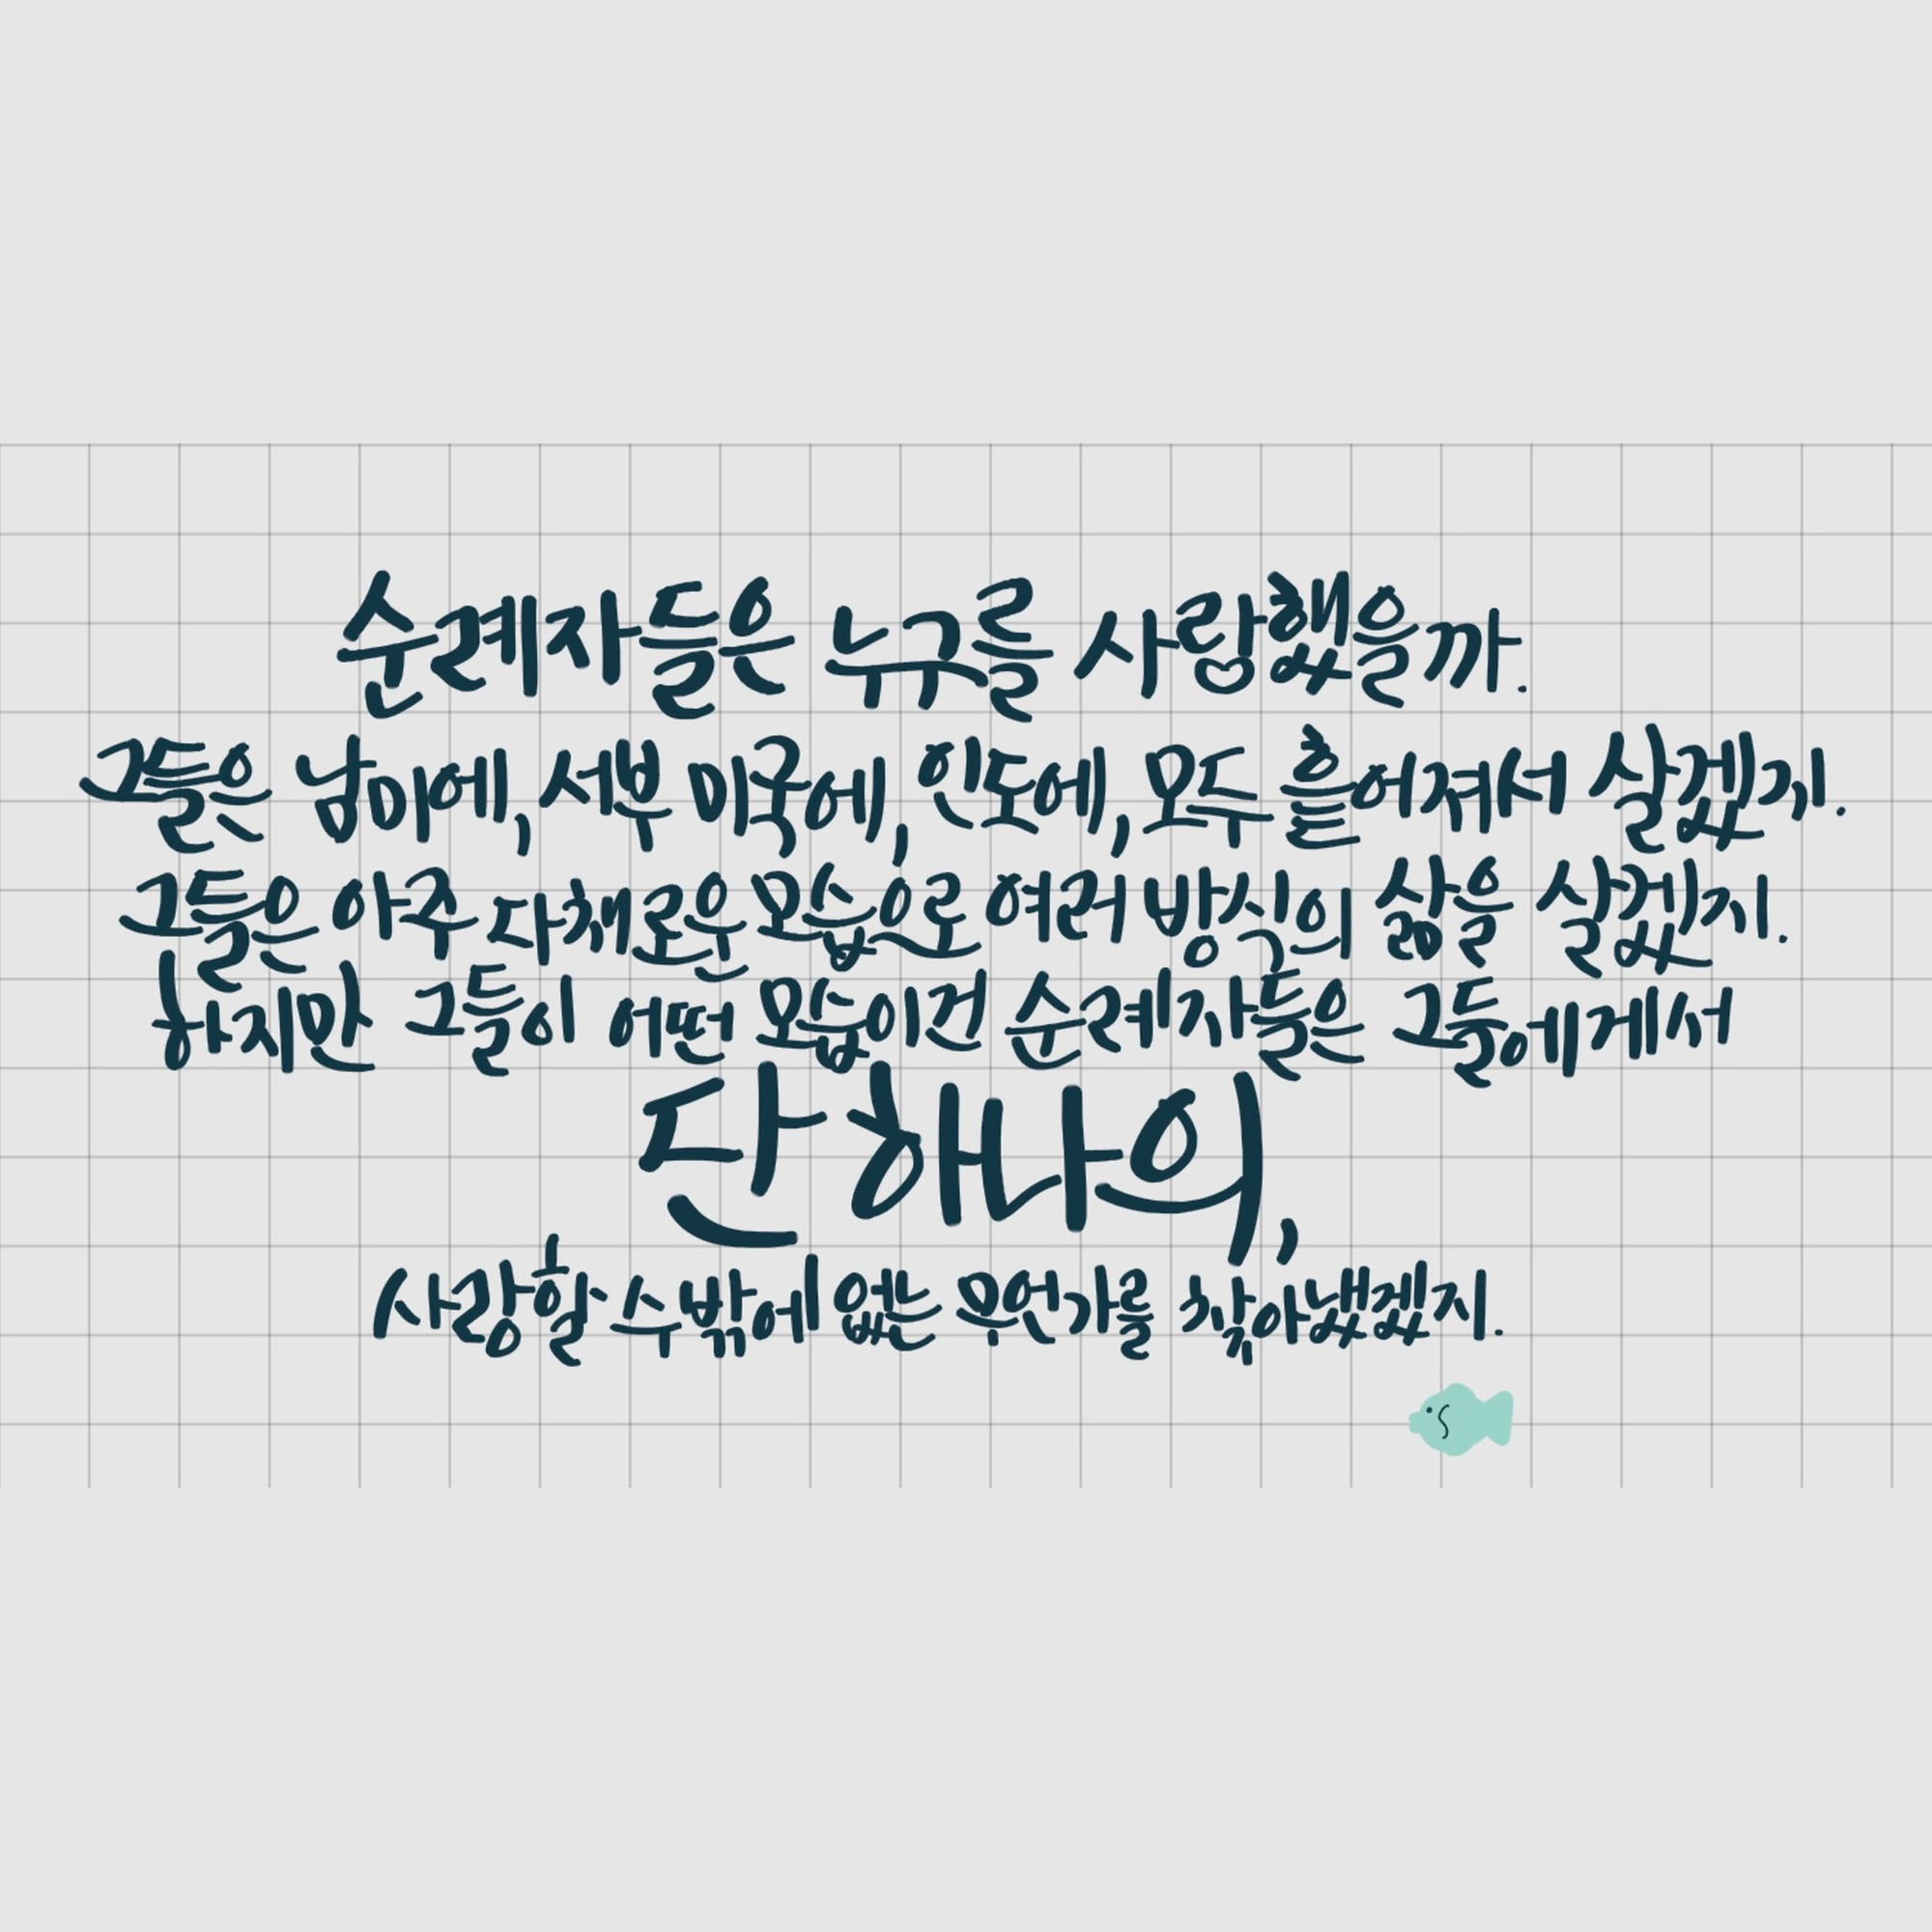 순례자들은 누구를 사랑했을까.
그들은 남미에, 서부 미국에, 인도에, 모두 흩어져서 살겠지.
그들은 아주 다채로운 모습으로 여러 방식의 삶을 살겠지.
하지만 그들이 어떤 모습이건 순례자들은 그들에게서
단 하나의,
사랑할 수밖에 없는 무언가를 찾아냈겠지.